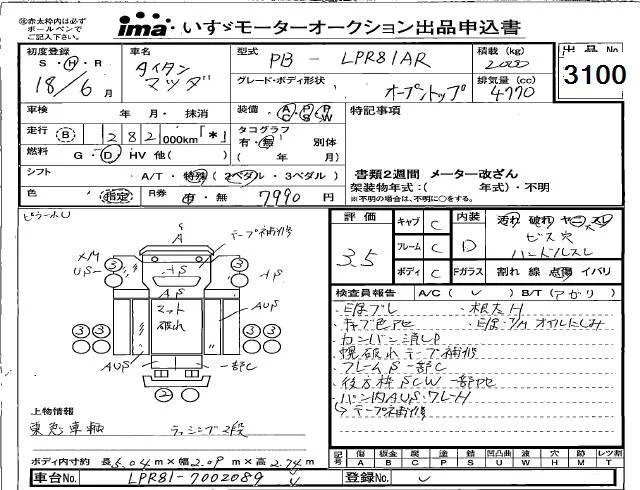 ※赤太枠内は必ず
ボールペンで
ご記入下さい。
ima いすゞモーターオークション出品申込書
初度登録
S・H・R
18/6月
車名
タイタン
マツダ
型式 PB - LPR81AR
積載(kg) 2000
出品No
3100
グレード・ボディ形状
オープントップ
排気量(cc) 4770
車検 年 月・抹消
装備 A/C P/S P/W
特記事項
走行 B 282000km「*」
タコグラフ
有・無 別体
( 年 月)
燃料 G・D・HV 他( )
シフト A/T・特殊(2ペダル・3ペダル)
書類2週間 メーター改ざん
架装物年式:( 年式)・不明
※不明の場合は、不明に○をする。
色 指定
R券 有・無 7990円
評価 3.5
キャブ C
フレーム C
ボディ C
内装 D
Fガラス
汚れ 破れ ヤニ スレ
ビス穴
ハンドルスレ
割れ 線 点傷 イバリ
ピラーホU
A
テープ補修
XM
US
③
③
AS
AS
AS
マット
破れ
AUS
③③
③③
AUS
一部C
②
検査員報告 A/C( ) B/T(アガリ)
・目床ブレ
・キャブ色アセ
・カンバン消しP
・幌破れ テープ補修
・フレームS 一部C
・後方枠SCW 一部他
・パン内AUSワレH
→テープ補修
上物情報
東急車輌 ラッシング2段
記号
傷 A
板金 B
腐 C
塗 P
錆 S
凹凸曲 U
波 W
穴 H
跡 M
レツ割 T
ボディ内寸約 長6.04m×幅2.09m×高2.74m
車台No. LPR81-7002089
登録No.